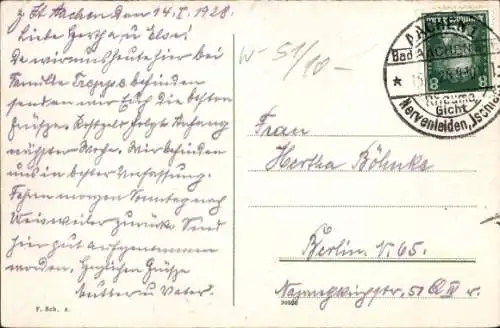 z. Zt. Aachen den 14.I. 1928.
Liebe Hertha u Else!
Da wir uns heute hier bei
Familie befinden
senden wir Euch die besten
Grüsse. folgt Anfang
nächster Woche. Wir befinden
uns in bester
Fahren morgen Sonntag nach
Weisweiler zurück. Sind
hier gut aufgenommen
worden. Herzlichen Grüsse
Mutter u Vater.
F. Sch. A.
W-51/10-
Frau
Hertha Böhnke
Berlin. N. 65.
AACHEN 1
Bad AACHEN
Rheuma,
Gicht
Nervenleiden, Ischias
8 8